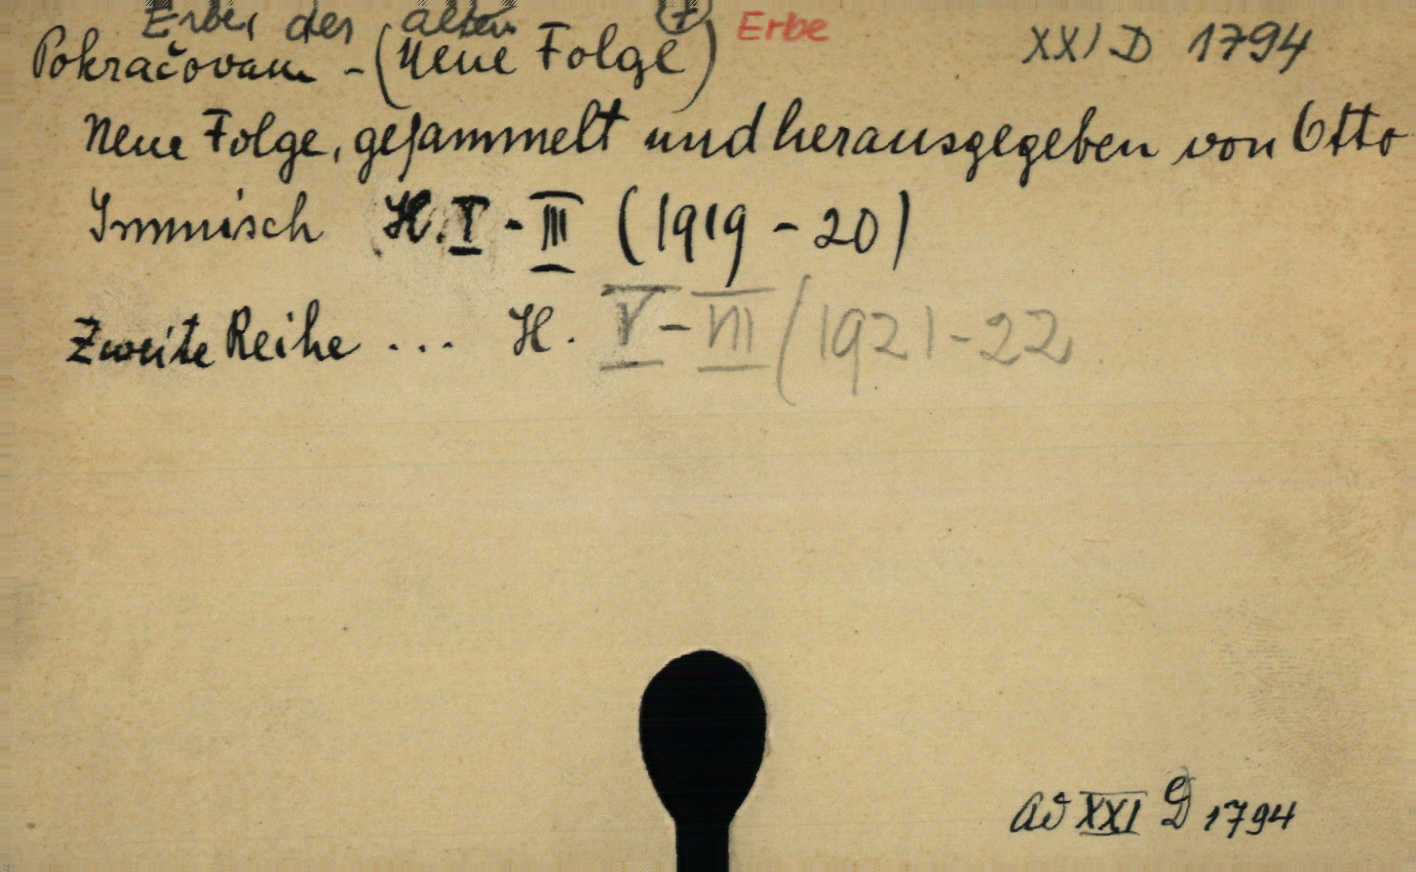 Erbe, der alten (7) Erbe
Pokračovam - (Neue Folge) XXI D 1794
Neue Folge, gesammelt und herausgegeben von Otto
Immisch H. I - III (1919 - 20)
Zweite Reihe ... H. V - VII (1921 - 22
ad XXI D 1794